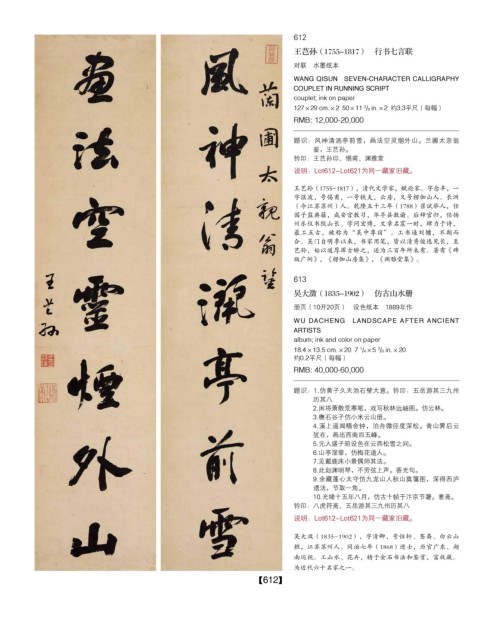 風神清灑亭前雪
茵圃太親翁鑒
畫法空靈煙外山
王芑孙
【612】
612
王芑孙（1755–1817） 行书七言联
对联 水墨纸本
WANG QISUN SEVEN-CHARACTER CALLIGRAPHY
COUPLET IN RUNNING SCRIPT
couplet; ink on paper
127 × 29 cm. × 2 50 × 11 3/8 in. × 2 约3.3平尺（每幅）
RMB: 12,000-20,000
题识：风神清洒亭前雪，画法空灵烟外山。兰圃太亲翁
鉴，王芑孙。
钤印：王芑孙印、惕甫、渊雅堂
说明：Lot612-Lot621为同一藏家旧藏。
王芑孙（1755-1817），清代文学家、赋论家。字念丰，一
字沤波，号惕甫，一号铁夫，云房，又号楞伽山人。长洲
（今江苏苏州）人。乾隆五十三年（1788）召试举人，任
国子监典簿，咸安宫教习，华亭县教谕。后辞官归，任扬
州乐仪书院山长。学问宏博，文章名震一时，肆力于诗，
最工五古，被称为“吴中尊宿”。工书逼刘墉，不期而
合。吴门自明季以来，书家用笔，皆以清秀俊逸见长，至
芑孙，始以遒厚浑古矫之，遂为三百年所未有。著有《碑
版广例》、《楞伽山房集》、《渊雅堂集》。
613
吴大澂（1835–1902） 仿古山水册
册页（10开20页） 设色纸本 1889年作
WU DACHENG LANDSCAPE AFTER ANCIENT
ARTISTS
album; ink and color on paper
18.4 × 13.5 cm. × 20 7 1/4 × 5 3/8 in. × 20
约0.2平尺（每幅）
RMB: 40,000-60,000
题识：1.仿黄子久天池石壁大意。钤印：五岳游其三九州
历其八
2.闲将萧散荒寒笔，戏写秋林远岫图。仿云林。
3.橅石谷子仿小米云山册。
4.溪上遥闻精舍钟，泊舟微径度深松。青山霁后云
犹在，画出西南四五峰。
5.元人盛子昭设色在云西松雪之间。
6.山亭涩章，仿梅花道人。
7.见戴鹿床小景偶师其法。
8.此如渊明琴，不劳弦上声。香光句。
9.余藏蓬心太守仿九龙山人秋山莫霭图，深得西庐
遗法，节取一角。
10.光绪十五年八月，仿古十帧于汴京节署。愙斋。
钤印：八虎符斋、五岳游其三九州历其八
说明：Lot612-Lot621为同一藏家旧藏。
吴大澂（1835-1902），字清卿，号恒轩、愙斋、白云山
樵，江苏苏州人。同治七年（1868）进士，历官广东、湖
南巡抚。工山水、花卉，精于金石书法和鉴赏，富收藏。
为近代六十名家之一。